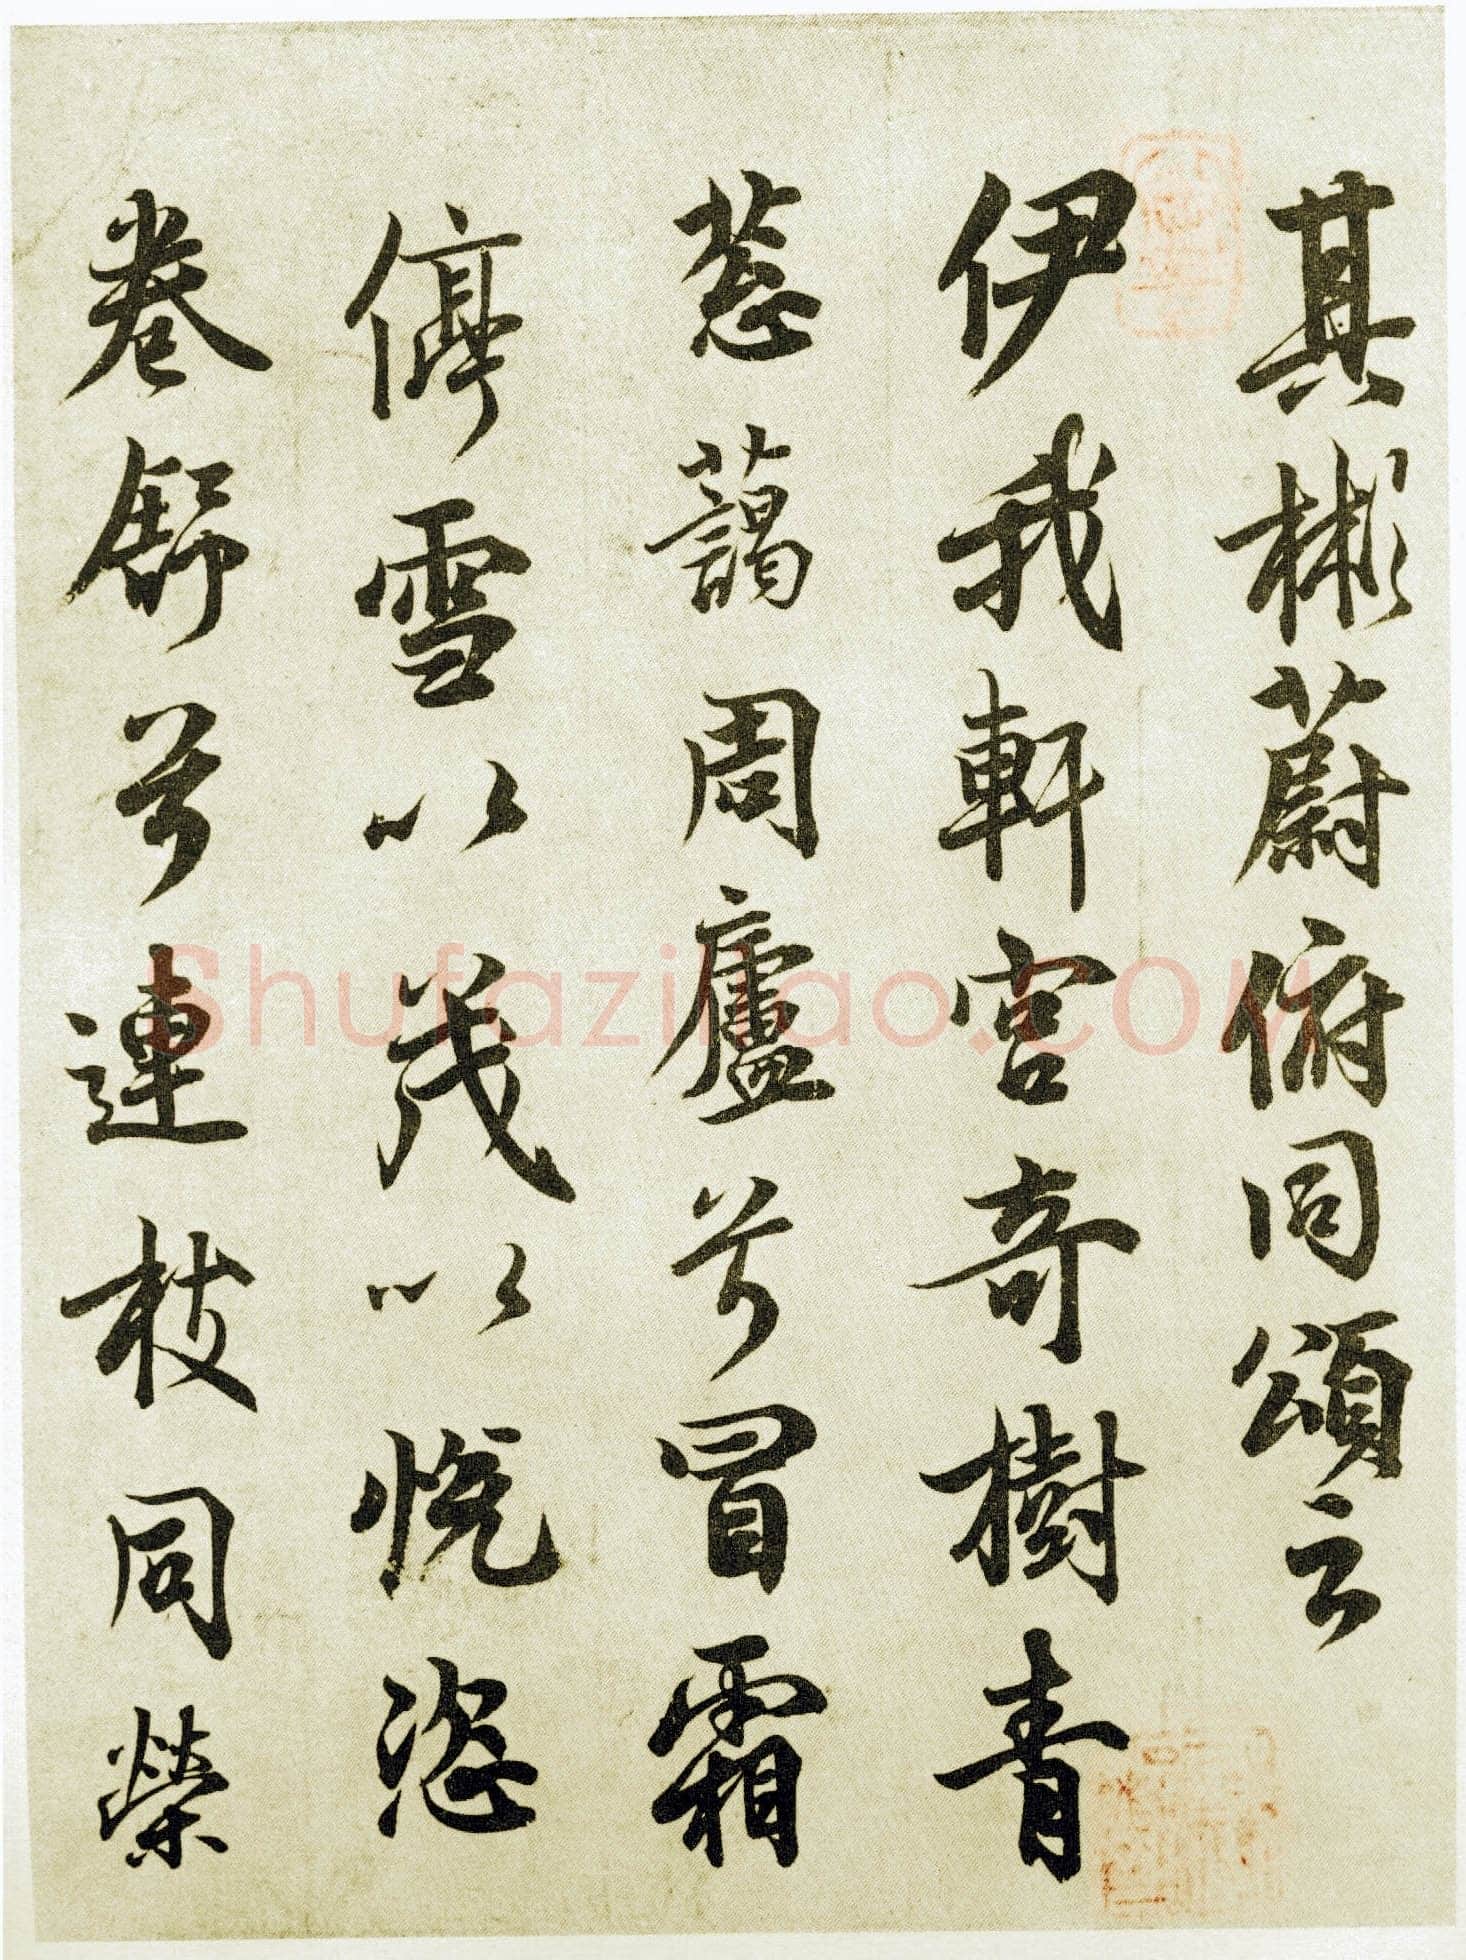 其彬蔚俯同頌云
伊我軒宮奇樹青
葱藹周廬兮冒霜
停雪以茂以悅恣
卷舒兮連枝同榮
Shufaziliao.COM